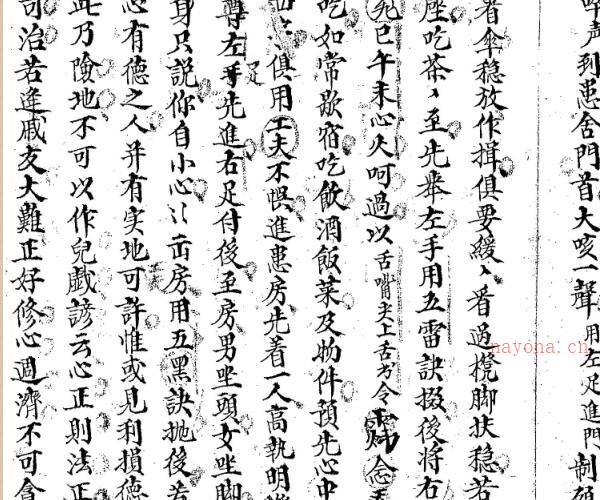 声到患舍門首大咳一聲用左足進門制
着伞稳放作揖俱要緩〻看過櫈脚扶稳若
座吃茶〻至先舉左手用五雷訣掇後將右
巳午未心火呵過以舌嘴尖上舌为令念
吃如常歇宿吃飲酒飯菜及物件預先心中
俱用工夫不悞進患房先着一人高執明
尊左手足先進右足付後至房男坐頭女坐脚
身只說你自小心〻出房用五黑訣抛後若
心有德之人并有实地可許惟或見利損德
此乃險地不可以作兒戲諺云心正則法正
可治若逢戚友大難正好修心週濟不可貪
nayona.cn